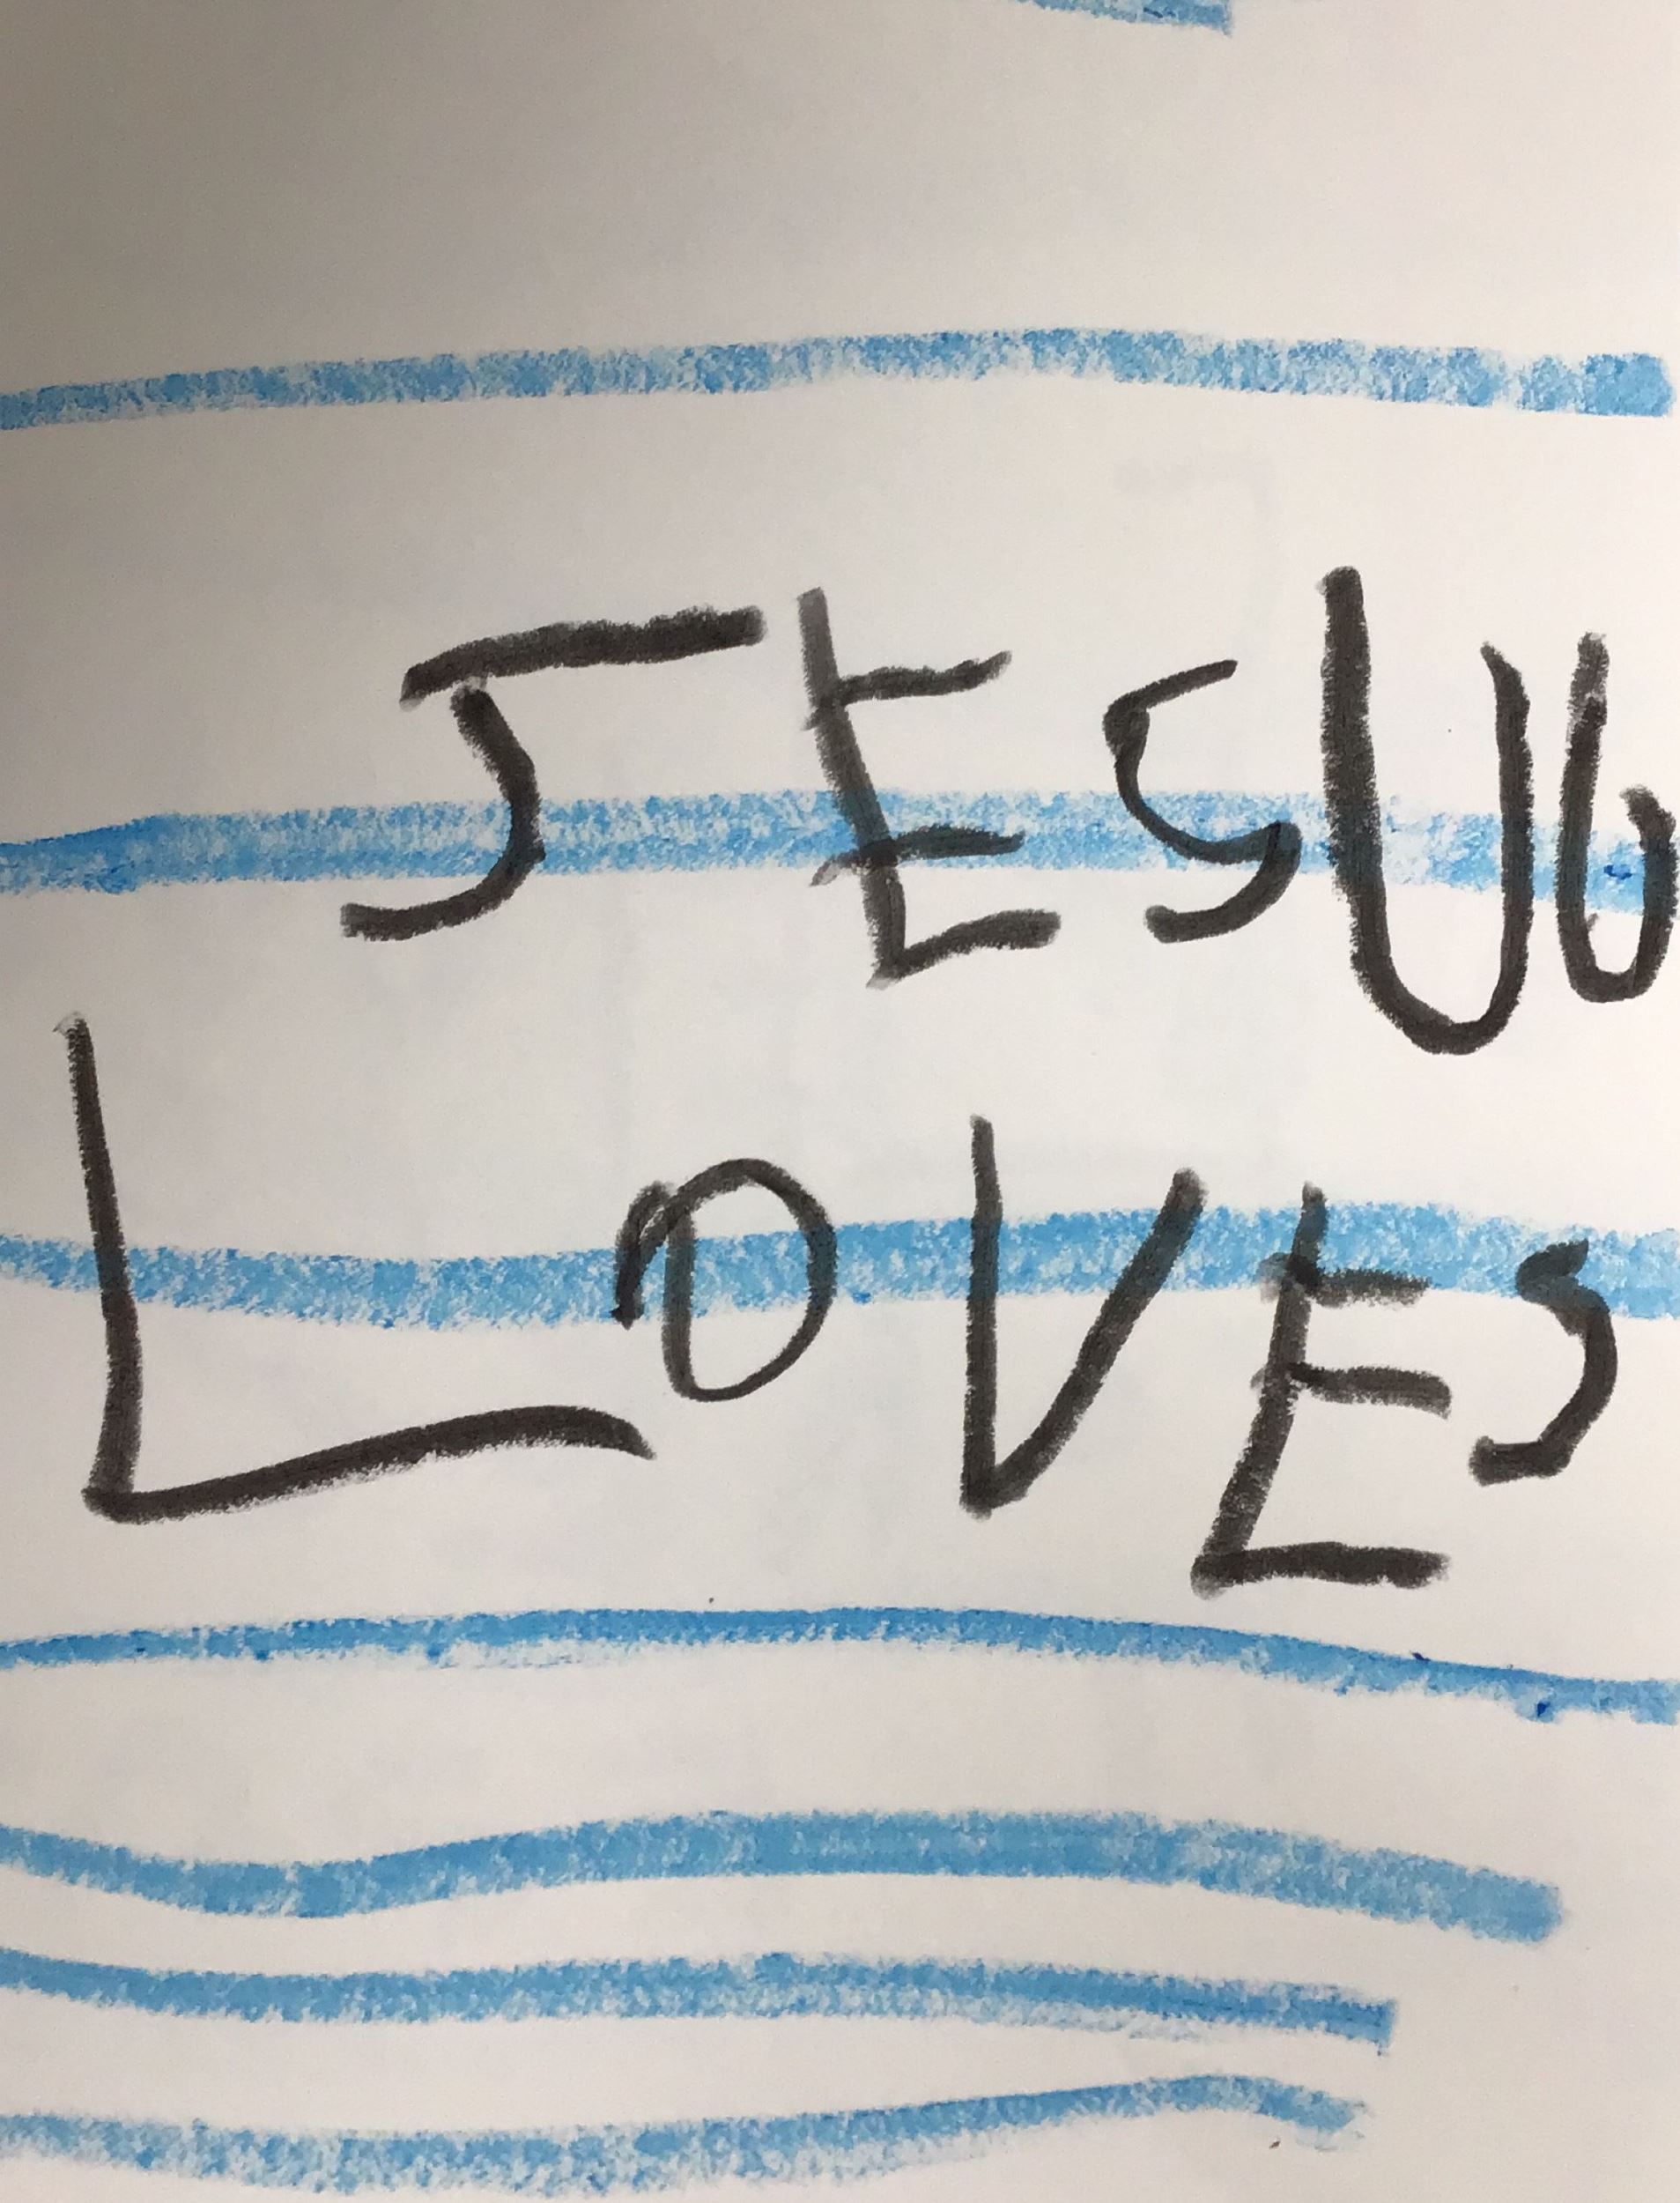 JESUS
LOVES